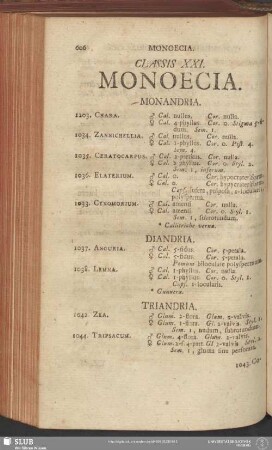 606 MONOECIA.
CLASSIS XXI.
MONOECIA.
MONANDRIA.
1203. CHARA. ♂ Cal. nullus. Cor. nulla.
♀ Cal. 4-phyllus. Cor. 0. Stigma 5-fidum. Sem. 1.
1034. ZANNICHELLIA. ♂ Cal. nullus. Cor. nulla.
♀ Cal. 1-phyllus. Cor. 0. Pist. 4.
Sem. 4.
1035. CERATOCARPUS. ♂ Cal. 2-partitus. Cor. nulla.
♀ Cal. 2-phyllus. Cor. 0. Styl. 2.
Sem. 1, inferum.
1036. ELATERIUM. ♂ Cal. 0. Cor. hypocrateriformis.
♀ Cal. 0. Cor. hypocrateriformis.
Caps. infera, 1-locularis,
polysperma.
1033. CYNOMORIUM. ♂ Cal. amenti Cor. nulla.
♀ Cal. amenti Cor. 0. Styl. 1.
Sem. 1, subrotundum.
* Callitriche verna.
DIANDRIA.
1037. ANGURIA. ♂ Cal. 5-fidus. Cor. 5-petala.
♀ Cal. 5-fidus. Cor. 5-petala.
Pomum biloculare polyspermum.
1038. LEMNA. ♂ Cal. 1-phyllus. Cor. nulla.
♀ Cal. 1-phyllus. Cor. 0. Styl. 1.
Caps. 1-locularis.
* Gunnera.
TRIANDRIA.
1042. ZEA. ♂ Glum. 2-flora. Glum. 2-valvis.
♀ Glum. 1-flora. Gl. 2-valvis. Styl. 1.
Sem. 1, nudum, subrotundum.
1044. TRIPSACUM. ♂ Glum. 4-flora. Glum. 2-valvis.
♀ Glum. 2-f. 4-part. Gl. 2-valvis. Styl. 2.
Sem. 1, gluma sinu perforata.
1043. Co-
SLUB